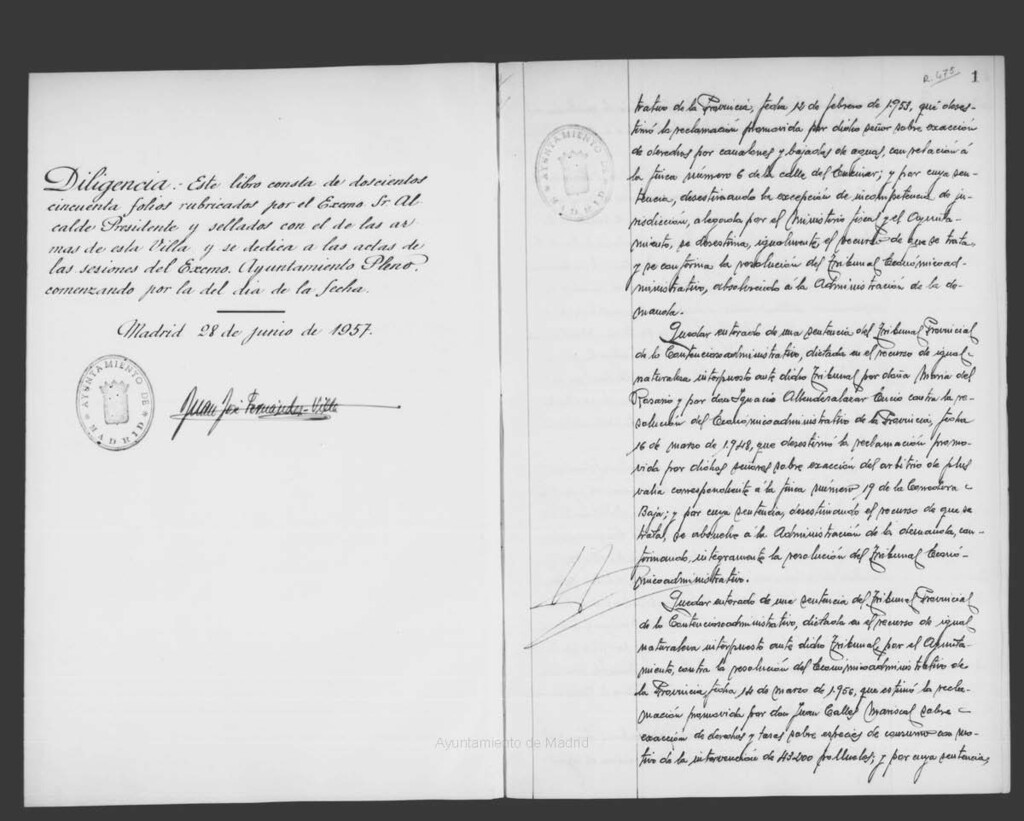 Diligencia: Este libro consta de doscientos
cincuenta folios rubricados por el Excmo Sr Al
calde Presidente y sellados con el de las ar
mas de esta Villa y se dedica a las actas de
las sesiones del Excmo. Ayuntamiento Pleno,
comenzando por la del dia de la fecha.
Madrid 28 de junio de 1957.
AYUNTAMIENTO DE MADRID
Juan José Fernández-Villa
R. 475
1
AYUNTAMIENTO DE MADRID
trativo de la Provincia, fecha 12 de febrero de 1953, que deses-
timó la reclamación promovida por dicho señor sobre exacción
de derechos por canalones y bajadas de aguas, con relación á
la finca número 6 de la calle del; y por cuya sen-
tencia, desestimando la excepción de incompetencia de ju-
risdicción, alegada por el Ministerio fiscal y el Ayunta-
miento, se desestima, igualmente, el recurso de que se trata,
y se confirma la resolución del Tribunal Económicoad-
ministrativo, absolviendo á la Administración de la de-
manda.
Quedar enterado de una sentencia del Tribunal Provincial
de lo Contenciosoadministrativo, dictada en el recurso de igual
naturaleza interpuesto ante dicho Tribunal por doña Maria del
Rosario y por don Ignacio Allendesalazar contra la re-
solución del Económicoadministrativo de la Provincia, fecha
16 de marzo de 1.948, que desestimó la reclamación promo-
vida por dichos señores sobre exacción del arbitrio de plus
valia correspondiente á la finca número 19 de la Corredera
Baja; y por cuya sentencia, desestimando el recurso de que se
trata, se absuelve á la Administración de la demanda, con-
firmando, integramente la resolución del Tribunal Econó-
micoadministrativo.
Quedar enterado de una sentencia del Tribunal Provincial
de lo Contenciosoadministrativo, dictada en el recurso de igual
naturaleza interpuesto ante dicho Tribunal, por el Ayunta-
miento, contra la resolución del Económicoadministrativo de
la Provincia fecha 14 de marzo de 1.956, que estimó la recla-
mación promovida por don Juan Calles Mariscal sobre
exacción de derechos y tasas sobre especies de consumo con mo-
tivo de la intervención de 43.200 polluelos; y por cuya sentencia,
Ayuntamiento de Madrid